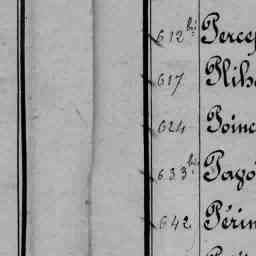 612 bis Percep
617 Plib
624 Poinc
633 bis Payo
642 Périn